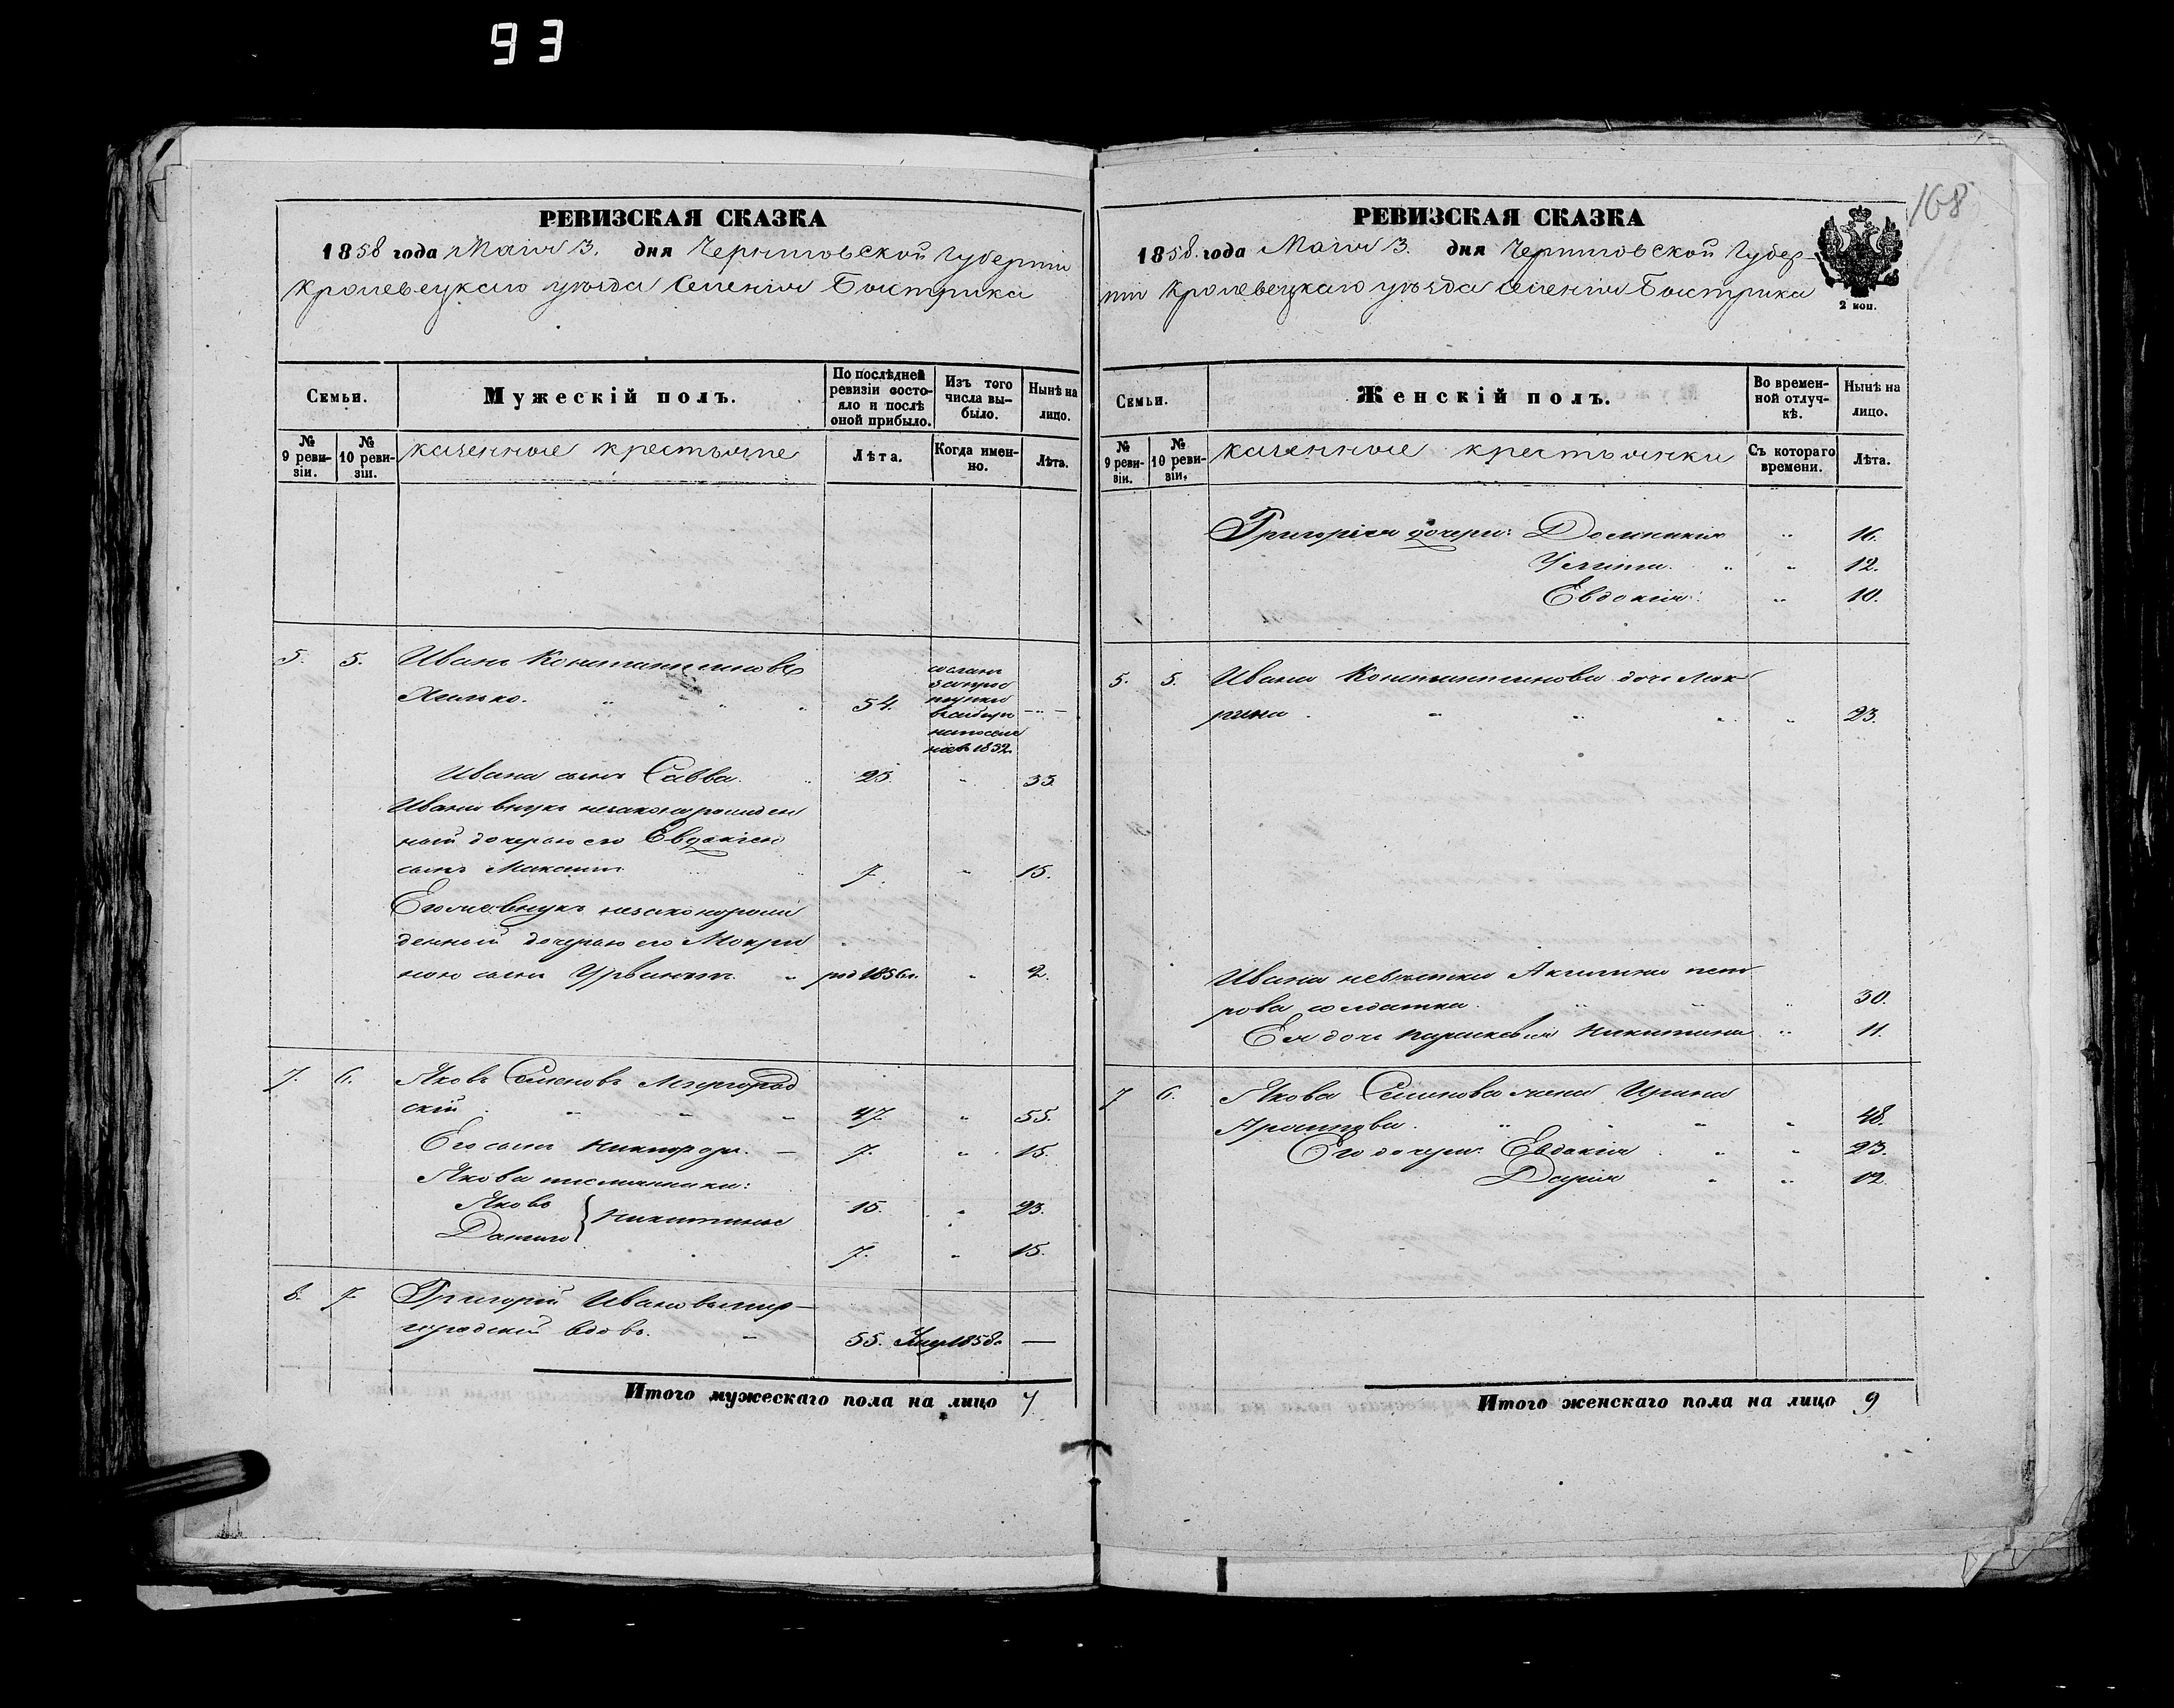 93
РЕВИЗСКАЯ СКАЗКА
1858 года Маія 3. дня Черниговской Губерніи
Кролевецкаго уѣзда Селенія Быстрика
Семьи.
Мужескій полъ.
По послѣдней ревизіи состояло и послѣ оной прибыло.
Изъ того числа выбыло.
Нынѣ на лицо.
№ 9 ревизіи.
№ 10 ревизіи.
казенные крестьяне
Лѣта.
Когда именно.
Лѣта.
5. 5. Иванъ Константиновъ
54.
сосланъ
въ сибирь
1852
Ивана сынъ Савва. 25. 33
Ивана внукъ незаконорожден
ный дочерью его Евдокіею
сынъ Максимъ 7. 15.
Его же внукъ незаконорож
денный дочерью его Мокри
ною сынъ род 1856 г. 2.
7. 6. Яковъ Семеновъ Миргород
скій 47. 55.
Его сынъ Никифоръ. 7. 15.
Якова племянники:
Яковъ Никитины 15. 23.
Данило 7. 15.
8. 7. Григорій Ивановъ мир-
городскій вдовъ. 55. Умер 1858 г. —
Итого мужескаго пола на лицо 7
168
РЕВИЗСКАЯ СКАЗКА
1858. года Маія 3. дня Черниговской Губер-
ніи Кролевецкаго уѣзда селенія Быстрика
2 коп.
Семьи.
Женскій полъ.
Во временной отлучкѣ.
Нынѣ на лицо.
№ 9 ревизіи.
№ 10 ревизіи.
казенные крестьянки
Съ котораго времени.
Лѣта.
Григорія дочери: Домникія 16.
Уліта. 12.
Евдокія. 10.
5. 5. Ивана Константинова дочь Мок
рина 23.
Ивана невѣстка Акилина пет
рова солдатка. 30.
Ея дочь параскевія Никитина 11.
7 6. Якова Семенова жена Ирина
48.
Его дочери: Евдокія 23.
Дарія 12.
Итого женскаго пола на лицо 9